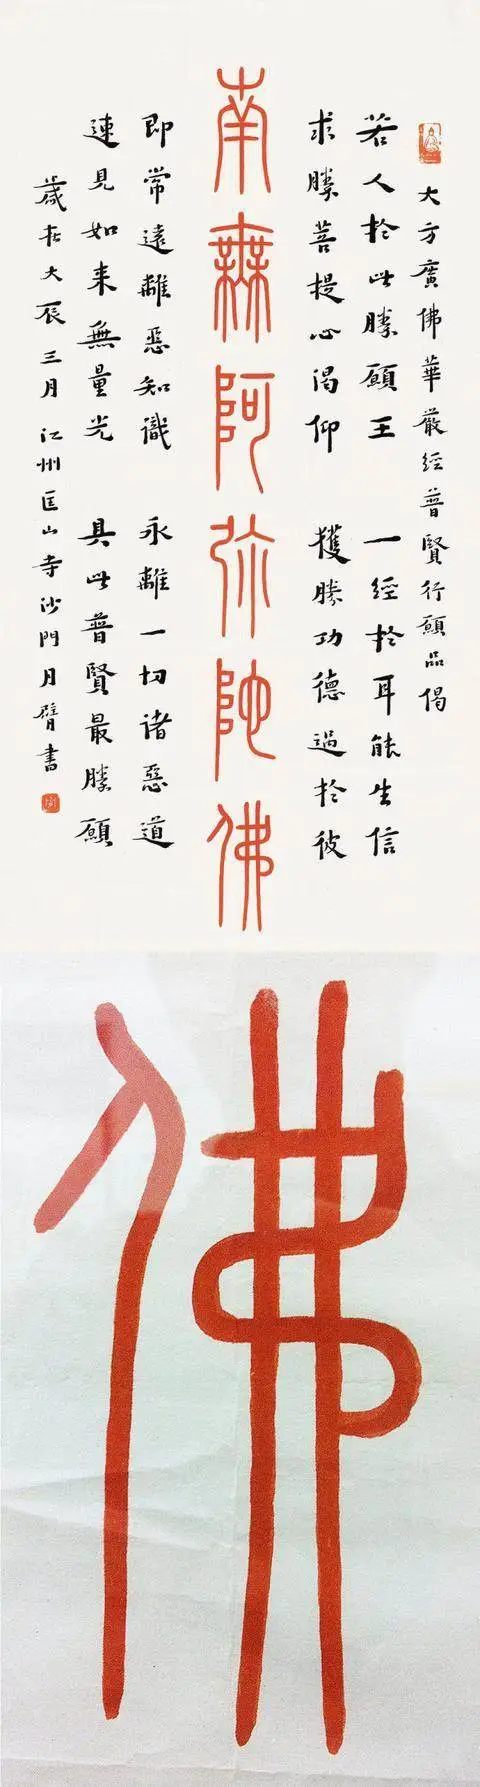 大方廣佛華嚴經普賢行願品偈
若人於此勝願王 一經於耳能生信
求勝菩提心渴仰 獲勝功德過於彼
南無阿弥陀佛
即常遠離惡知識 永離一切諸惡道
速見如来無量光 具此普賢最勝願
歲在大辰三月 江州匡山寺沙門月臂書
佛